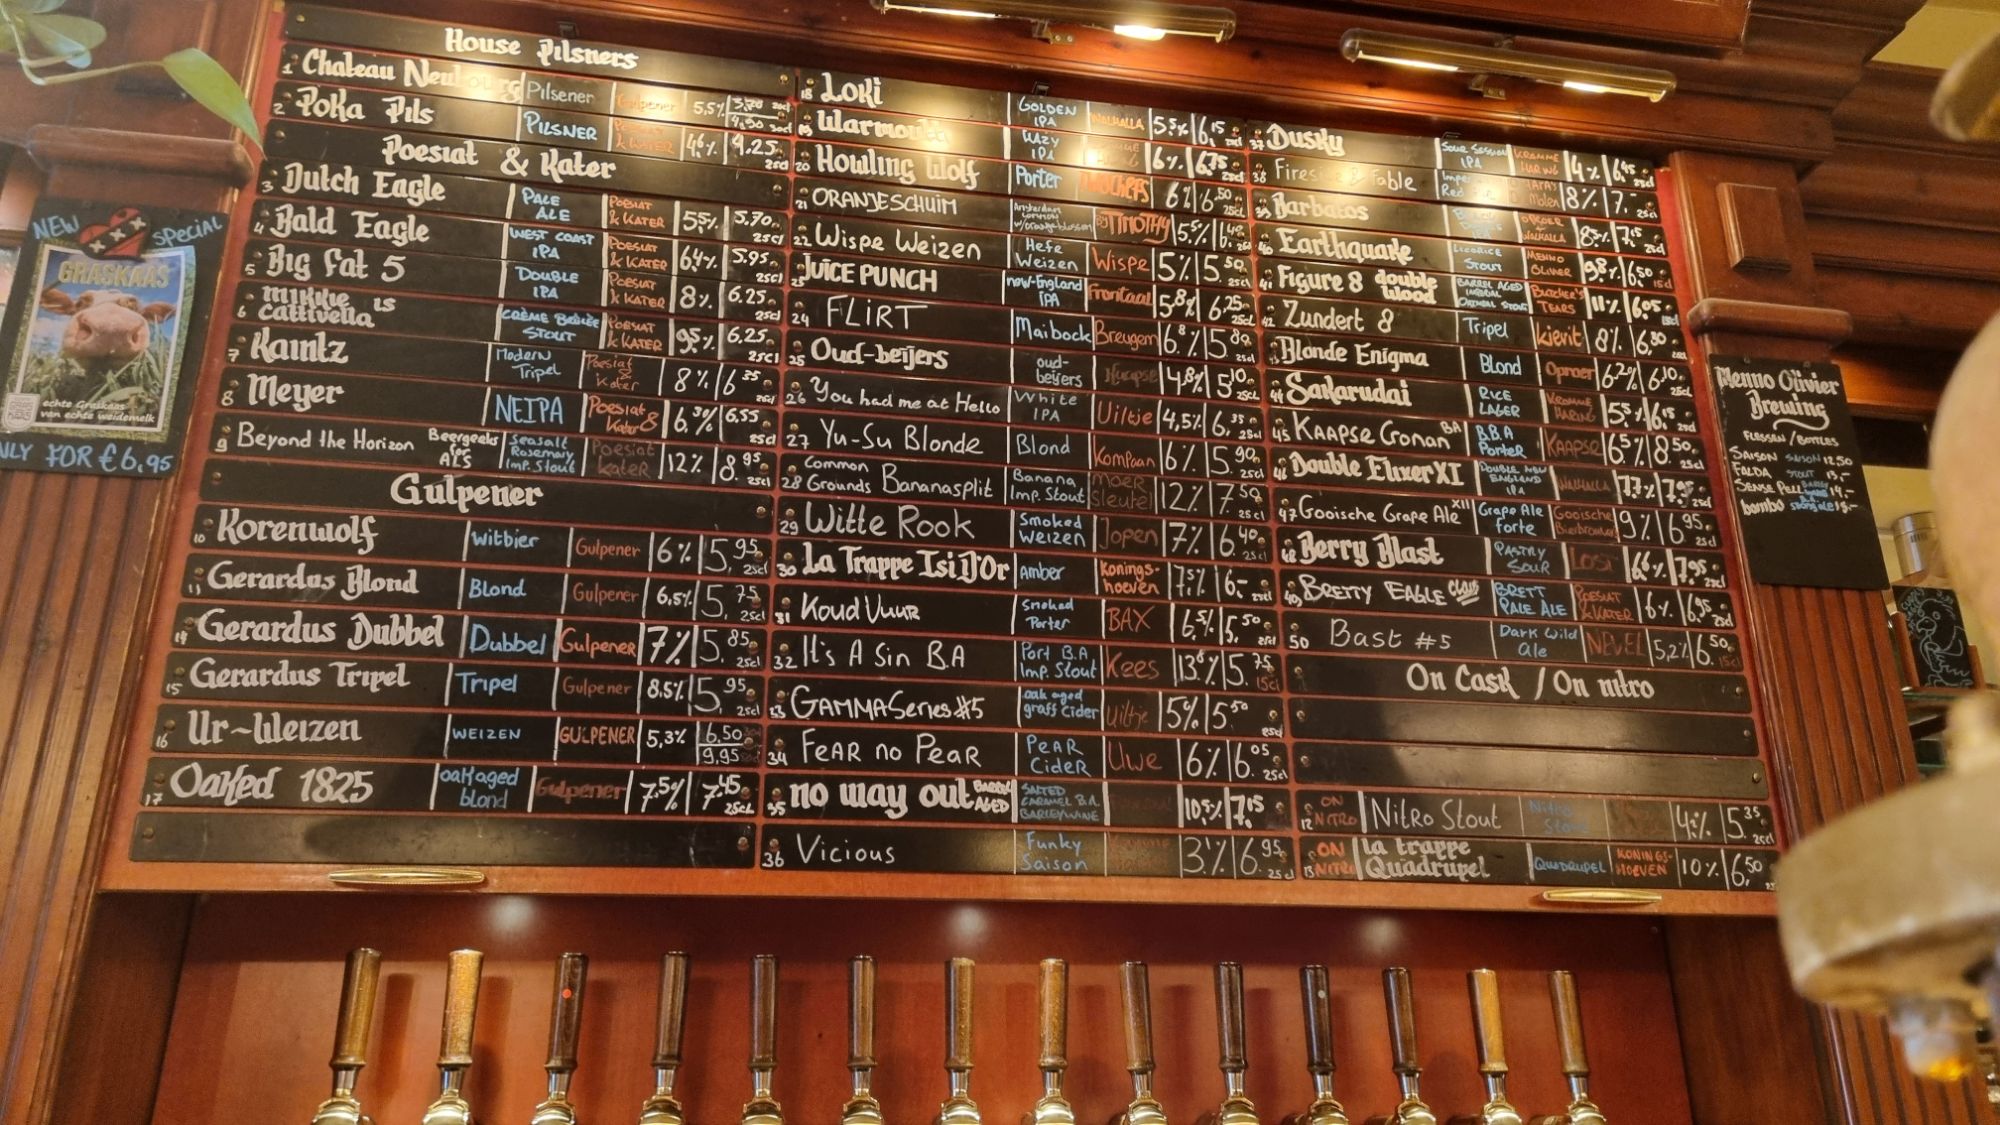 House Pilsners
1 Chateau Neubourg Pilsener Gulpener 5,5% 20cl 4.90 30cl
2 Poka Pils PILSNER 4.25 25cl
Poesiat & Kater
3 Dutch Eagle PALE ALE POESIAT & KATER 5.5% 5.70 25cl
4 Bald Eagle WEST COAST IPA POESIAT & KATER 6.4% 5.95 25cl
5 Big Fat 5 DOUBLE IPA POESIAT & KATER 8% 6.25 25cl
6 Mikkie is Cattivella CRÈME BRÛLÉE STOUT POESIAT & KATER 9.5% 6.25 25cl
7 Kaintz Modern Tripel Poesiat & Kater 8% 6.35 25cl
8 Meyer NEIPA Poesiat & Kater 6.3% 6.55 25cl
9 Beyond the Horizon Beergeeks for ALS Seasalt Rosemary Imp. Stout Poesiat Kater 12% 8.95 25cl
Gulpener
10 Korenwolf Witbier Gulpener 6% 5.95 25cl
11 Gerardus Blond Blond Gulpener 6.5% 5.75 25cl
14 Gerardus Dubbel Dubbel Gulpener 7% 5.85 25cl
15 Gerardus Tripel Tripel Gulpener 8.5% 5.95 25cl
16 Ur-Weizen WEIZEN GULPENER 5,3% 6.50 9,95
17 Oaked 1825 oak aged blond Gulpener 7.5% 7.45 25cl
18 Loki GOLDEN IPA WALHALLA 5.5% 6.15
19 Warmouth HAZY IPA 6% 6.75 25cl
20 Howling Wolf Porter 6% 6.50 25cl
21 ORANJESCHUIM Amsterdam Common w/orange blossom By TIMOTHY 5.5% 6.40
22 Wispe Weizen Hefe Weizen Wispe 5% 5.50 25cl
23 JUICE PUNCH new-England IPA Frontaal 5.8% 6.25 25cl
24 FLIRT Maibock Breugem 6.8% 5.80 25cl
25 Oud-beijers oud-beijers 4,8% 5.10 25cl
26 You had me at Hello White IPA Uiltje 4,5% 6.35 25cl
27 Yu-Su Blonde Blond Kompaan 6% 5.90 25cl
28 Common Grounds Bananasplit Banana Imp. Stout moersleutel 12% 7.50 25cl
29 Witte Rook Smoked Weizen Jopen 7% 6.40 25cl
30 La Trappe Isid'Or Amber Konings-hoeven 7.5% 6.- 25cl
31 Koud Vuur Smoked Porter BAX 6.5% 5.50 25cl
32 It's A Sin B.A Port B.A Imp. Stout Kees 13.6% 5.75 15cl
33 GAMMA Series #5 oak aged graff Cider Uiltje 5% 5.50 25cl
34 FeAR no PeAR PeAR CideR Uwe 6% 6.05 25cl
35 no way out BARREL AGED SALTED CARAMEL B.A. BARLEYWINE 10.5% 7.05
36 Vicious Funky Saison 6.95 25cl
37 Dusky SOUR SESSION IPA KROMME HARING 4% 6.45 25cl
38 Fireside Fable 8% 7.- 25cl
39 Barbatos WALHALLA 8.5% 7.15 25cl
40 Earthquake LICORICE STOUT MENNO OLIVIER 9.8% 6.50 15cl
41 Figure 8 double wood BARREL AGED IMPERIAL OATMEAL STOUT BUTCHER'S TEARS 11% 6.05
42 Zundert 8 Tripel Kievit 8% 6.80 25cl
43 Blonde Enigma Blond Oproer 6.2% 6.10 25cl
44 Sakarudai RICE LAGER KROMME HARING 5.5% 6.15 25cl
45 KAAPSE Conan BA B.B.A PORTER KAAPSE 6.5% 8.50 25cl
46 Double Elixer XI DOUBLE NEW ENGLAND IPA WALHALLA 7.7% 7.95 25cl
47 Gooische Grape Ale XII Grape Ale forte Gooische Bierbrouwerij 9% 6.95 25cl
48 Berry Blast PASTRY SOUR LOST 6.6% 7.95 25cl
49 BRETTY EAGLE CLAUS BRETT PALE ALE POESIAT & KATER 6% 6.95 25cl
50 Bast #5 Dark Wild Ale NEVEL 5,2% 6.50 15cl
On Cask / On nitro
12 ON NITRO Nitro Stout Nitro Stout 5.35 25cl
13 ON NITRO la trappe Quadrupel QUADRUPEL KONINGS-HOEVEN 10% 6,50
NEW SPECIAL
GRASKAAS
echte Graskaas
van echte weidemelk
ONLY FOR € 6,95
Menno Olivier
Brewing
FLESSEN / BOTTLES
SAISON SAISON 12,50
FALDA STOUT 13,-
SENSE PELL 14,-
bombo 15,-